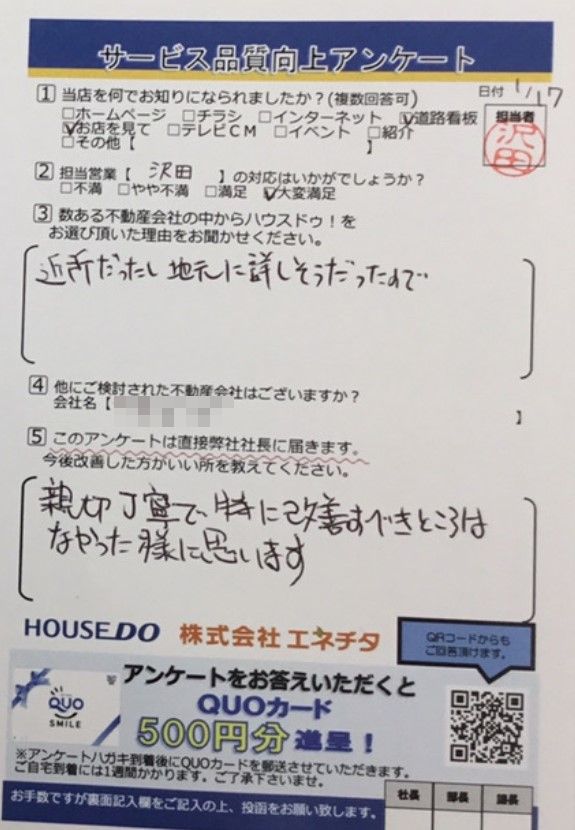 サービス品質向上アンケート
日付 1/17
1 当店を何でお知りになられましたか？(複数回答可)
□ホームページ □チラシ □インターネット ☑道路看板
☑お店を見て □テレビCM □イベント □紹介
□その他【 】
担当者
沢田
2 担当営業【 沢田 】の対応はいかがでしょうか？
□不満 □やや不満 □満足 ☑大変満足
3 数ある不動産会社の中からハウスドゥ！を
お選び頂いた理由をお聞かせください。
近所だったし 地元に詳しそうだったので
4 他にご検討された不動産会社はございますか？
会社名【 】
5 このアンケートは直接弊社社長に届きます。
今後改善した方がいい所を教えてください。
親切丁寧で、特に改善すべきところは
なかった様に思います
HOUSEDO 株式会社 エネチタ
QRコードからも
ご回答頂けます。
QUO
SMILE
アンケートをお答えいただくと
QUOカード
500円分 進呈！
※アンケートハガキ到着後にQUOカードを郵送させていただきます。
ご自宅到着には1週間かかります。ご了承下さいませ。
お手数ですが裏面記入欄をご記入の上、投函をお願い致します。
社長 部長 課長